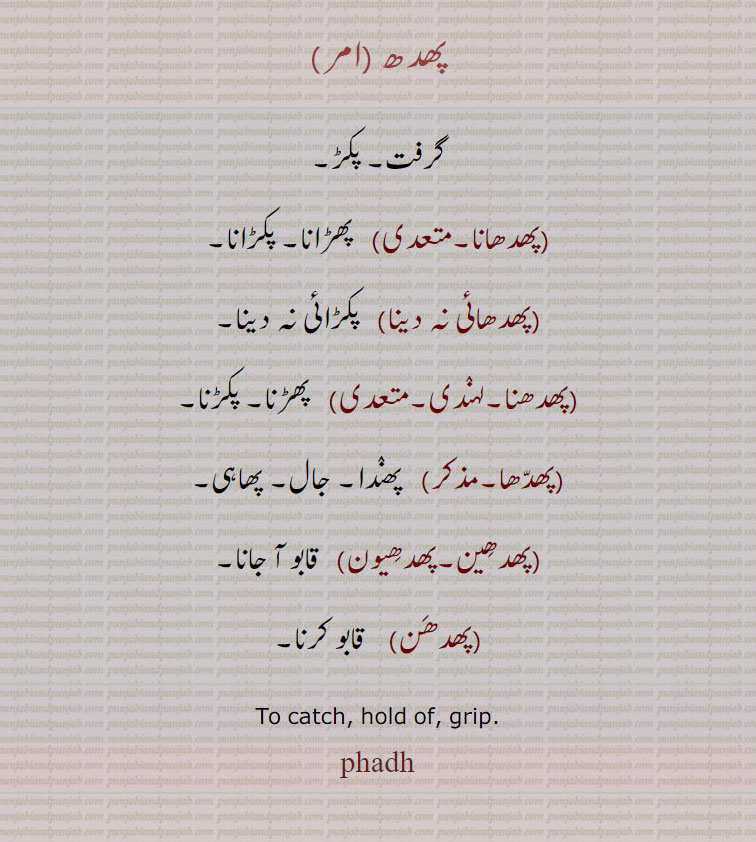 پھدھ (امر)
گرفت۔ پکڑ۔
(پھدھانا۔متعدی) پھڑانا۔ پکڑانا۔
(پھدھائی نہ دینا) پکڑائی نہ دینا۔
(پھدھنا۔لہن٘دی۔متعدی) پھڑنا۔ پکڑنا۔
(پھدّھا۔مذکر) پھن٘دا۔ جال۔ پھاہی۔
(پھدھِین۔پھدھِیون) قابو آ جانا۔
(پھدھَن) قابو کرنا۔
To catch, hold of, grip.
phadh